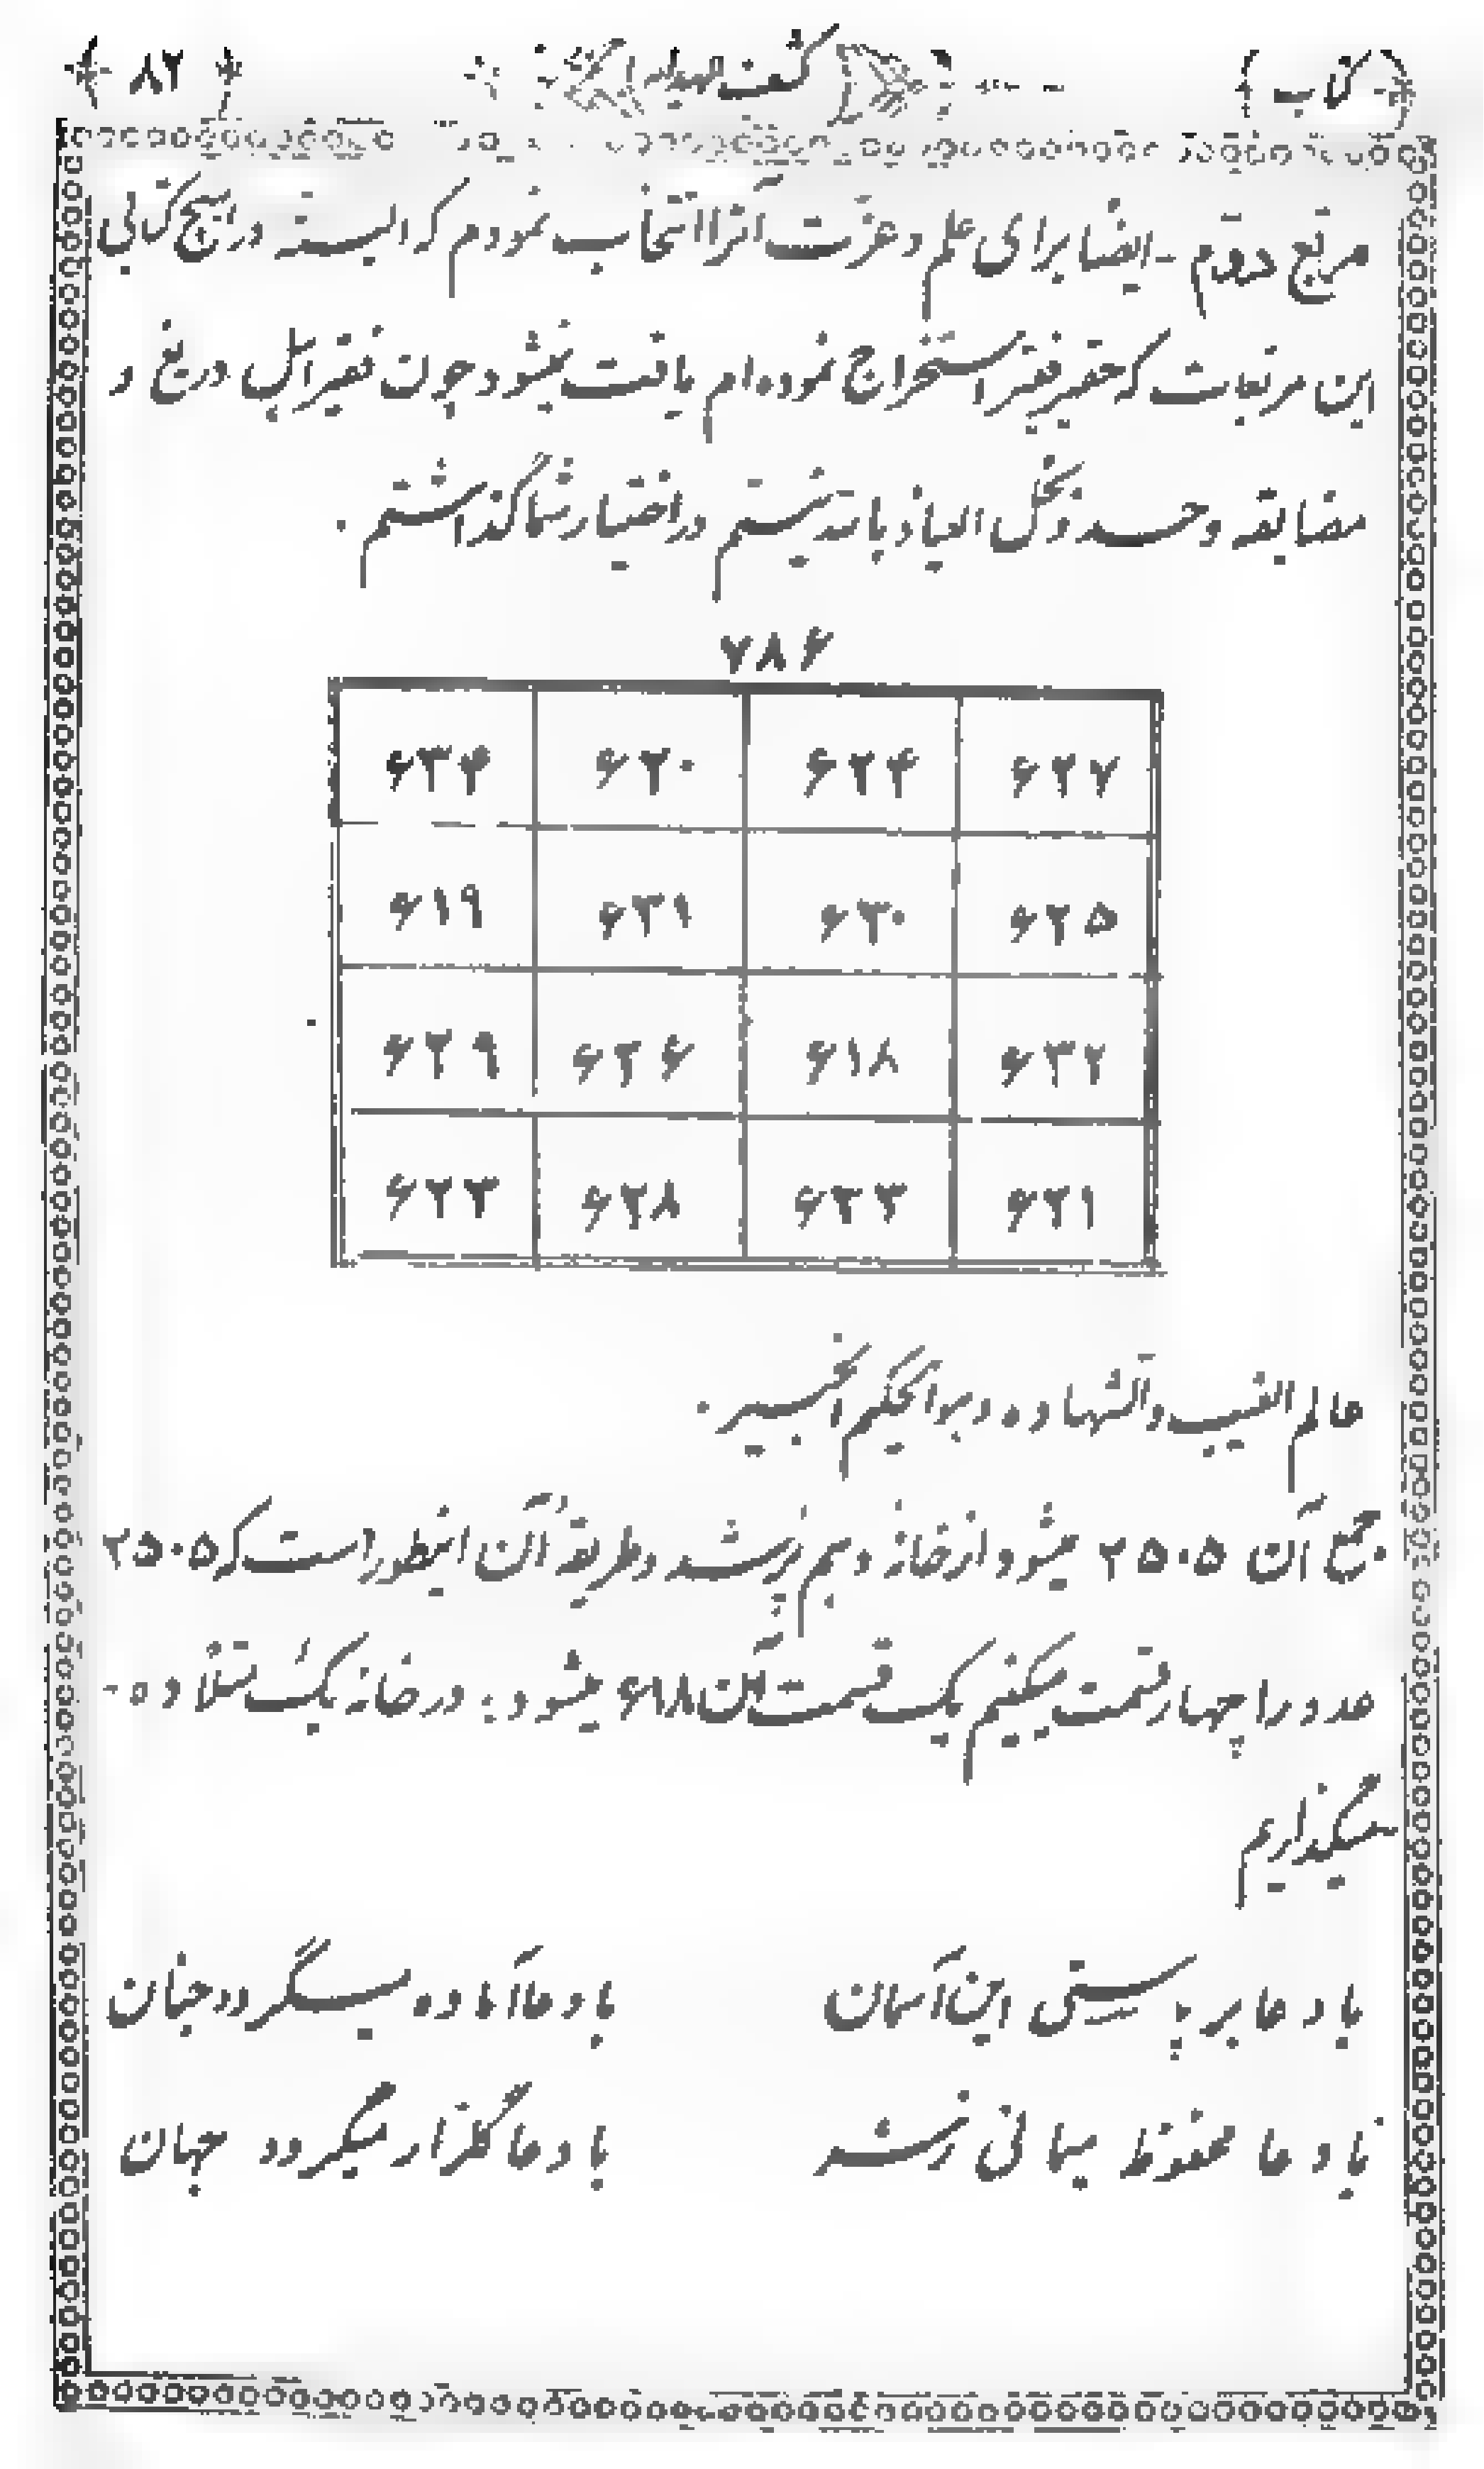 کتاب کشف الهدایه ۸۲
مربع دوم - ایضا برای علم و عزت آنرا انتخاب نمودم که البسته در هیچ کتابی
این مربعات که حقیر فقیر استخراج نموده‌ام یافت نمیشود چون فقیر اهل دریغ و
مضایقه و حسد و بخل العیاذ بالله نیستم در اختیار شما گذاشتم .
۷۸۶
۶۲۷ ۶۲۴ ۶۲۰ ۶۳۴
۶۲۵ ۶۳۰ ۶۳۱ ۶۱۹
۶۳۲ ۶۱۸ ۶۲۶ ۶۲۹
۶۲۱ ۶۳۳ ۶۲۸ ۶۲۳
عالم الغیب و الشهاده و هو الحکیم الخبیر .
جمع آن ۲۵۰۵ میشود از خانه دهم پر شد و طریقه آن اینطور است که ۲۵۰۵
عدد را چهار قسمت میکنیم یک قسمت آن ۶۱۸ میشود : در خانه یک مثلا ده -
میگذاریم
با دعا بر پاستی این آسمان با دعا آماده میگردد جنان
با دعا محفوظ میمانی ز شر با دعا گلزار میگردد جهان